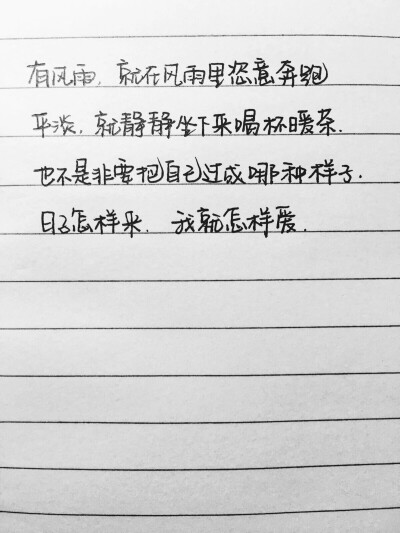 有风雨，就在风雨里恣意奔跑
平淡，就静静坐下来喝杯暖茶．
也不是非要把自己过成哪种样子．
日子怎样来，我就怎样爱．